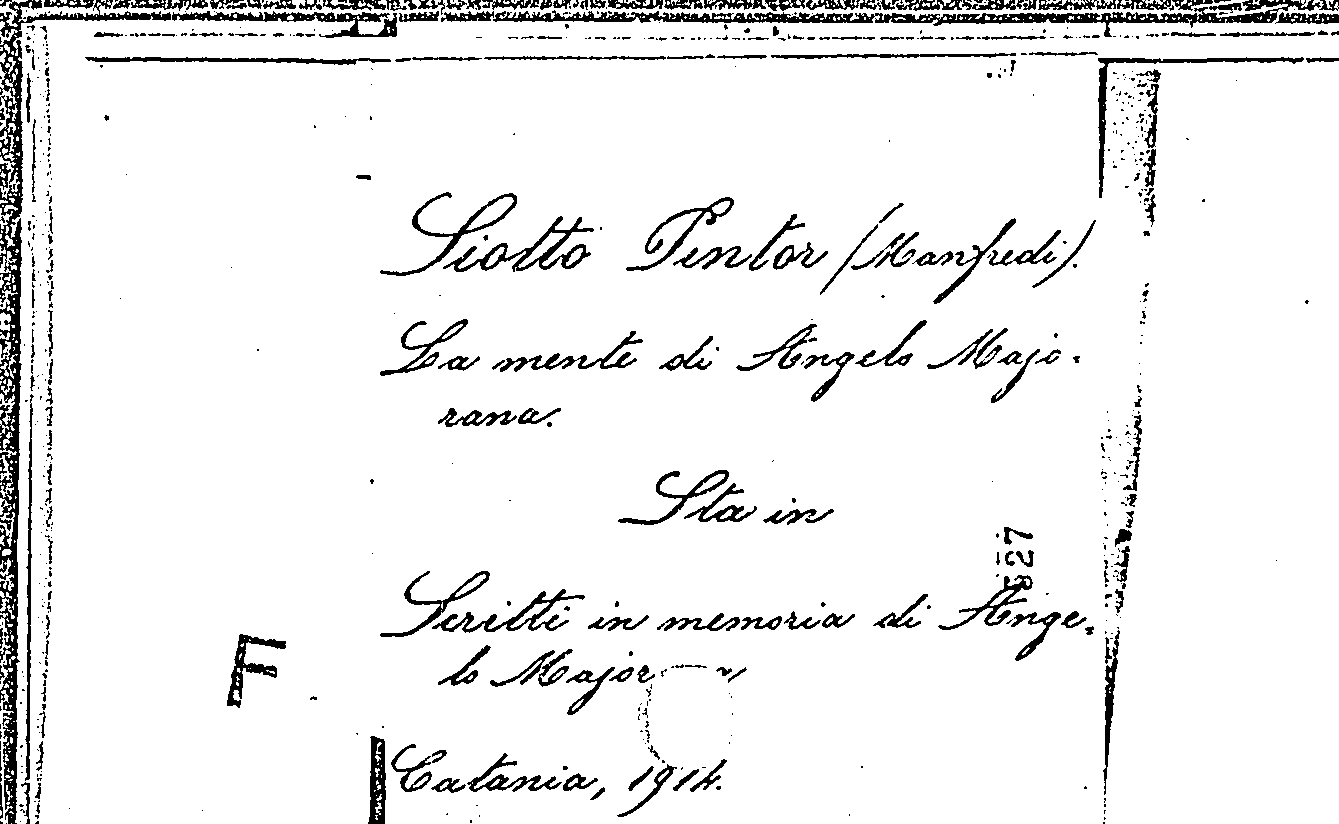 Siotto Pintor (Manfredi).
La mente di Angelo Majo-
rana.
Sta in
827
Scritti in memoria di Ange-
lo Major
F
Catania, 1914.